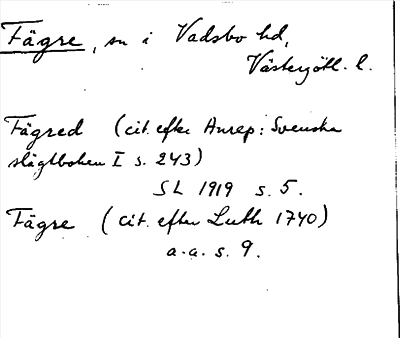 Fägre, sn i Vadsbo hd,
Västergötl. l.
Fägred (cit. efter Anrep: Svenska
slägtboken I s. 243)
SL 1919 s. 5.
Fägre (cit. efter Luth 1740)
a.a. s. 9.